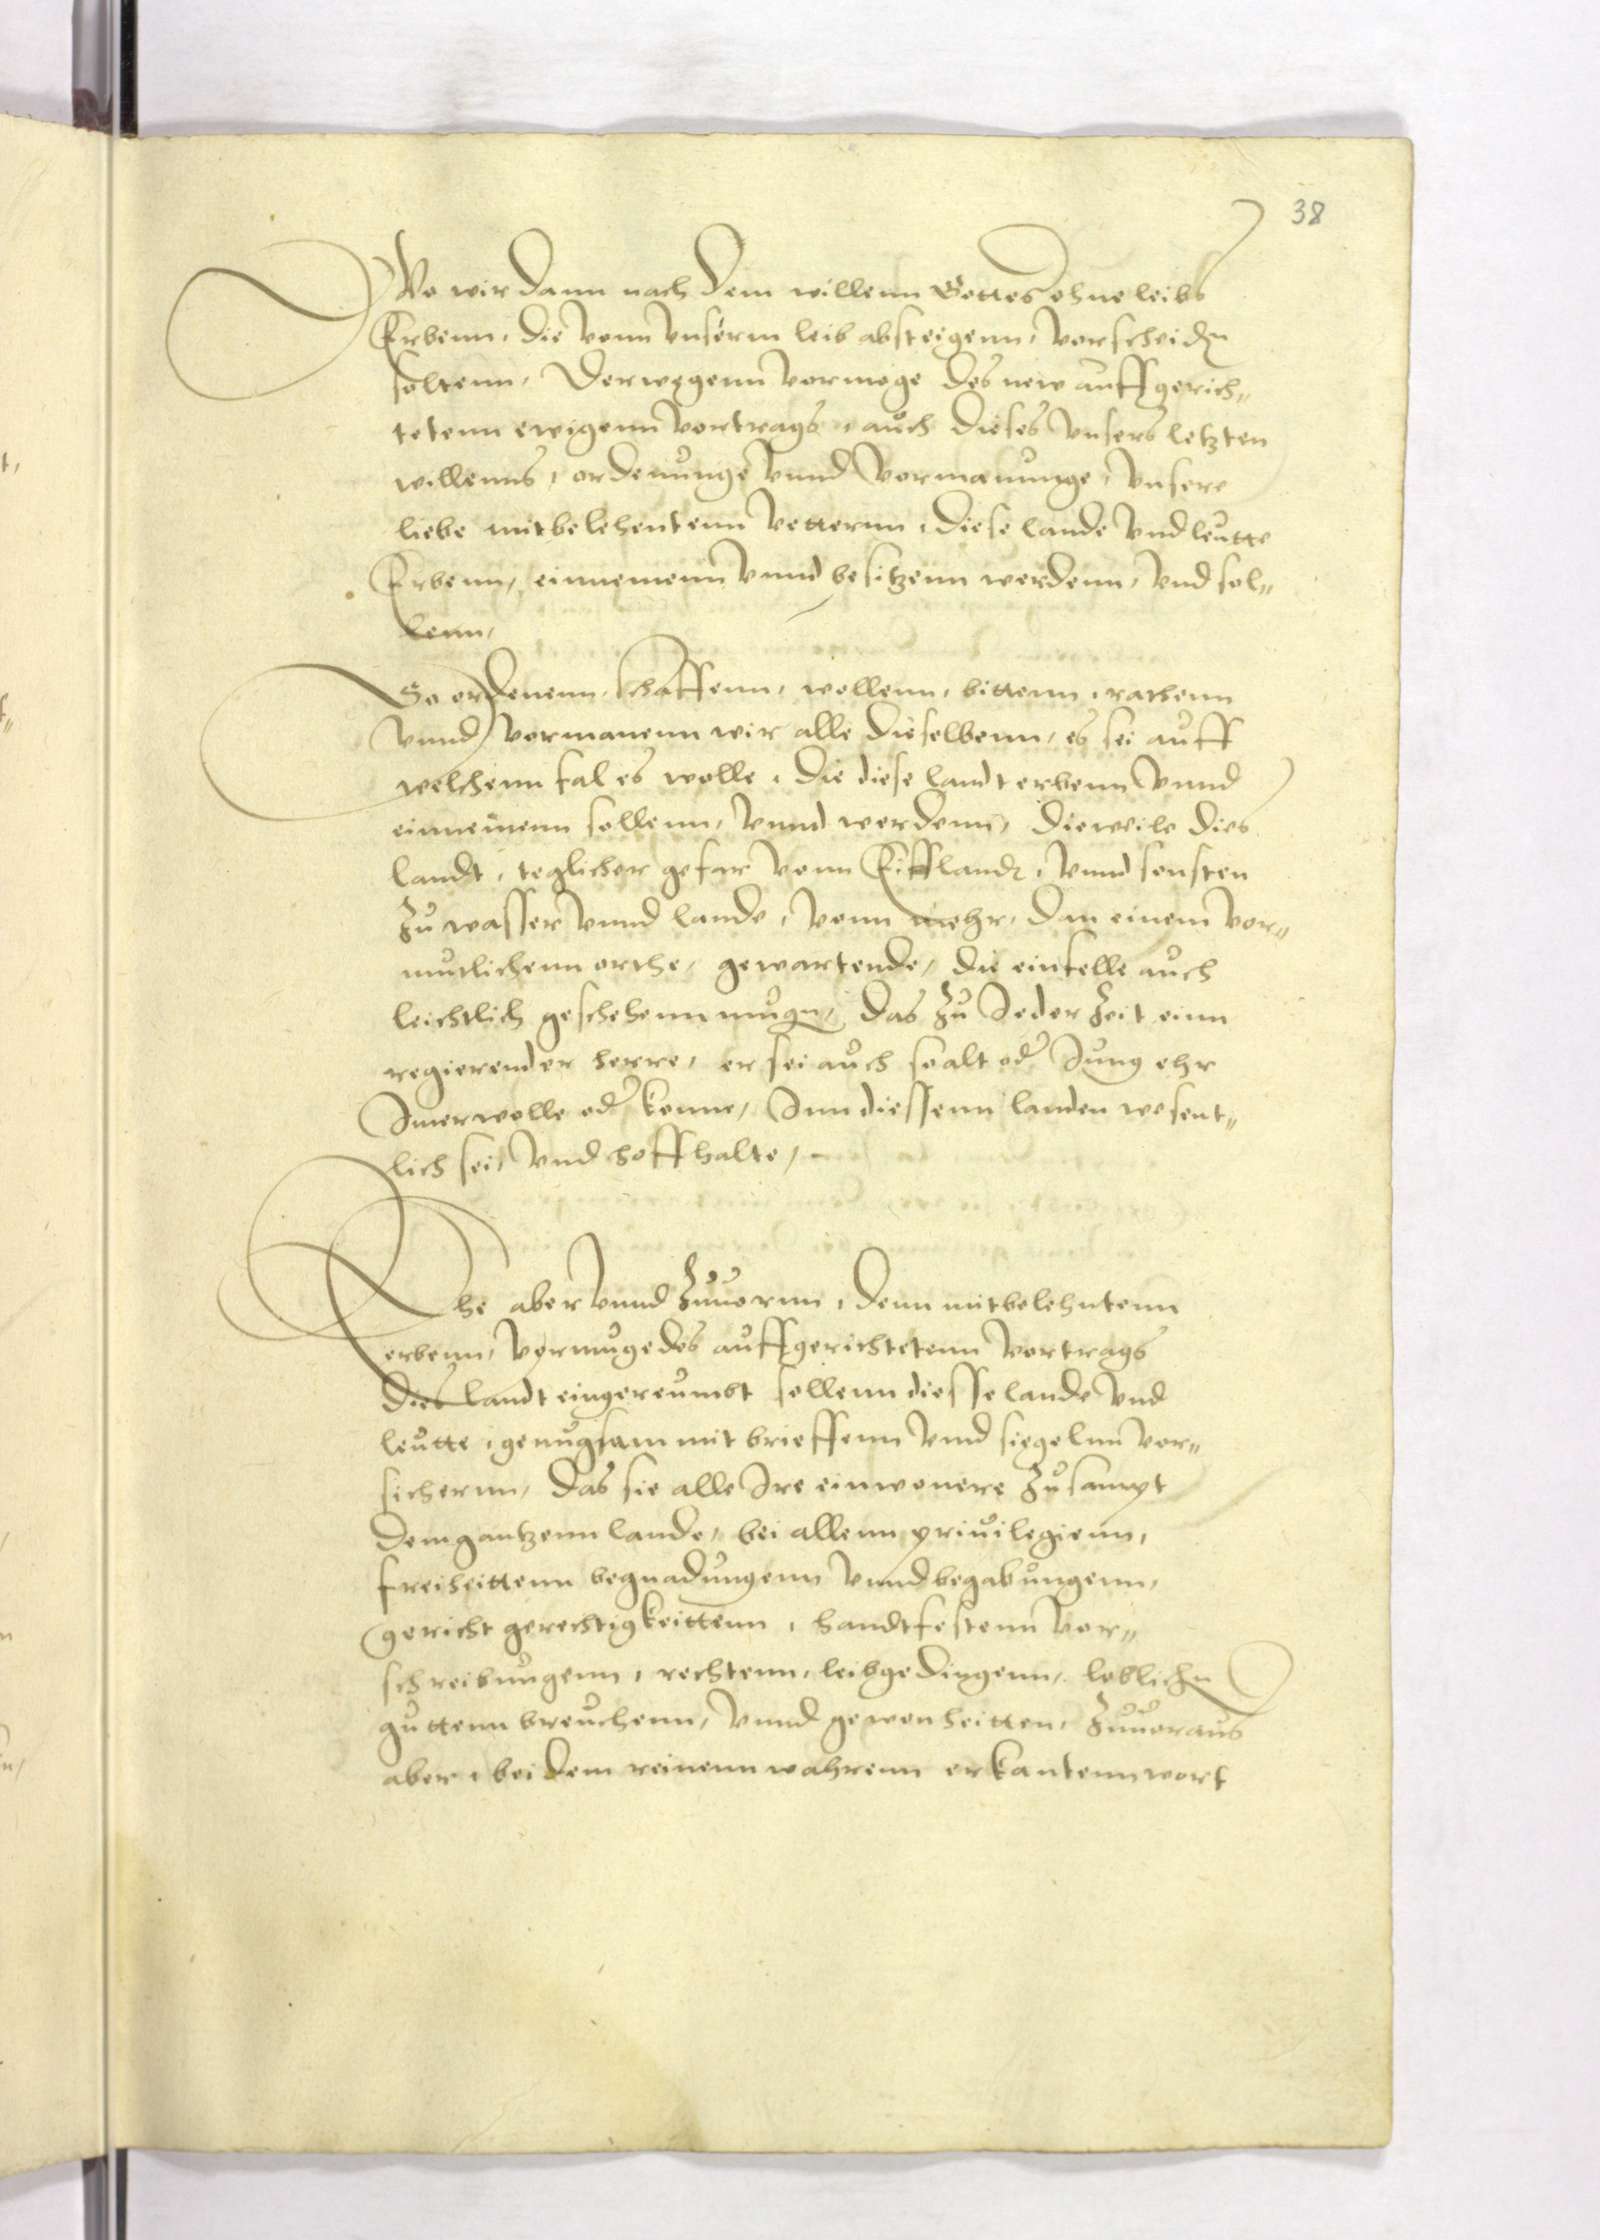 38
Wo wir dann nach dem willenn Gottes ohne leibs
Erbenn, die vonn vnserm leib absteigenn, vorscheiden
soltenn, Derwegenn vormoge des new auffgerich„
tetenn ewigenn vortrags, auch dieses vnsers letzten
willenns, ordenunge vnnd vormanunge, vnsere
liebe mitbelehentenn vetternn, diese lande vnd leutte
Erbenn, einnemenn vnnd besitzenn werdenn, vnd sol„
lenn,
So ordenenn, schaffenn, wollenn, bittenn, rathenn
vnnd vormanenn wir alle dieselbenn, es sei auff
welchenn fal es wolle, die diese landt erbenn vnnd
einnemenn sollenn, vnnd werdenn, dieweile dies
landt, teglicher gefar vonn Eifflandt, vnnd sonsten
zu wasser vnnd lande, vonn mehr, dan einem vor„
mutlichenn orthe, gewartende, die einfelle auch
leichtlich geschehenn mugen, das zu Jeder zeit einn
regierender herre, er sei auch so alt oder Jung ehr
Jmer wolle oder konne, Jnn diessenn landen wesent„
lich sei, vnd hoff halte,
Ehe aber vnnd zuuornn, denn mitbelehntenn
erbenn, vormuge des auffgerichtetenn vortrags
dies landt eingereumbt sollenn diesse lande vnd
leutte, genugsam mit brieffenn vnnd siegelnn vor„
sichernn, das sie alle Jre einwonere zusampt
dem gantzenn lande, bei allenn priuilegienn,
freiheittenn begnadungenn vnnd begabungenn,
gericht gerechtigkeittenn, handtfestenn vor„
schreibungenn, rechtenn, leibgedingenn, loblichen
guttenn breuchenn, vnnd gewonheitten, zuuoraus
aber, bei dem reinenn wahrenn erkantenn wort